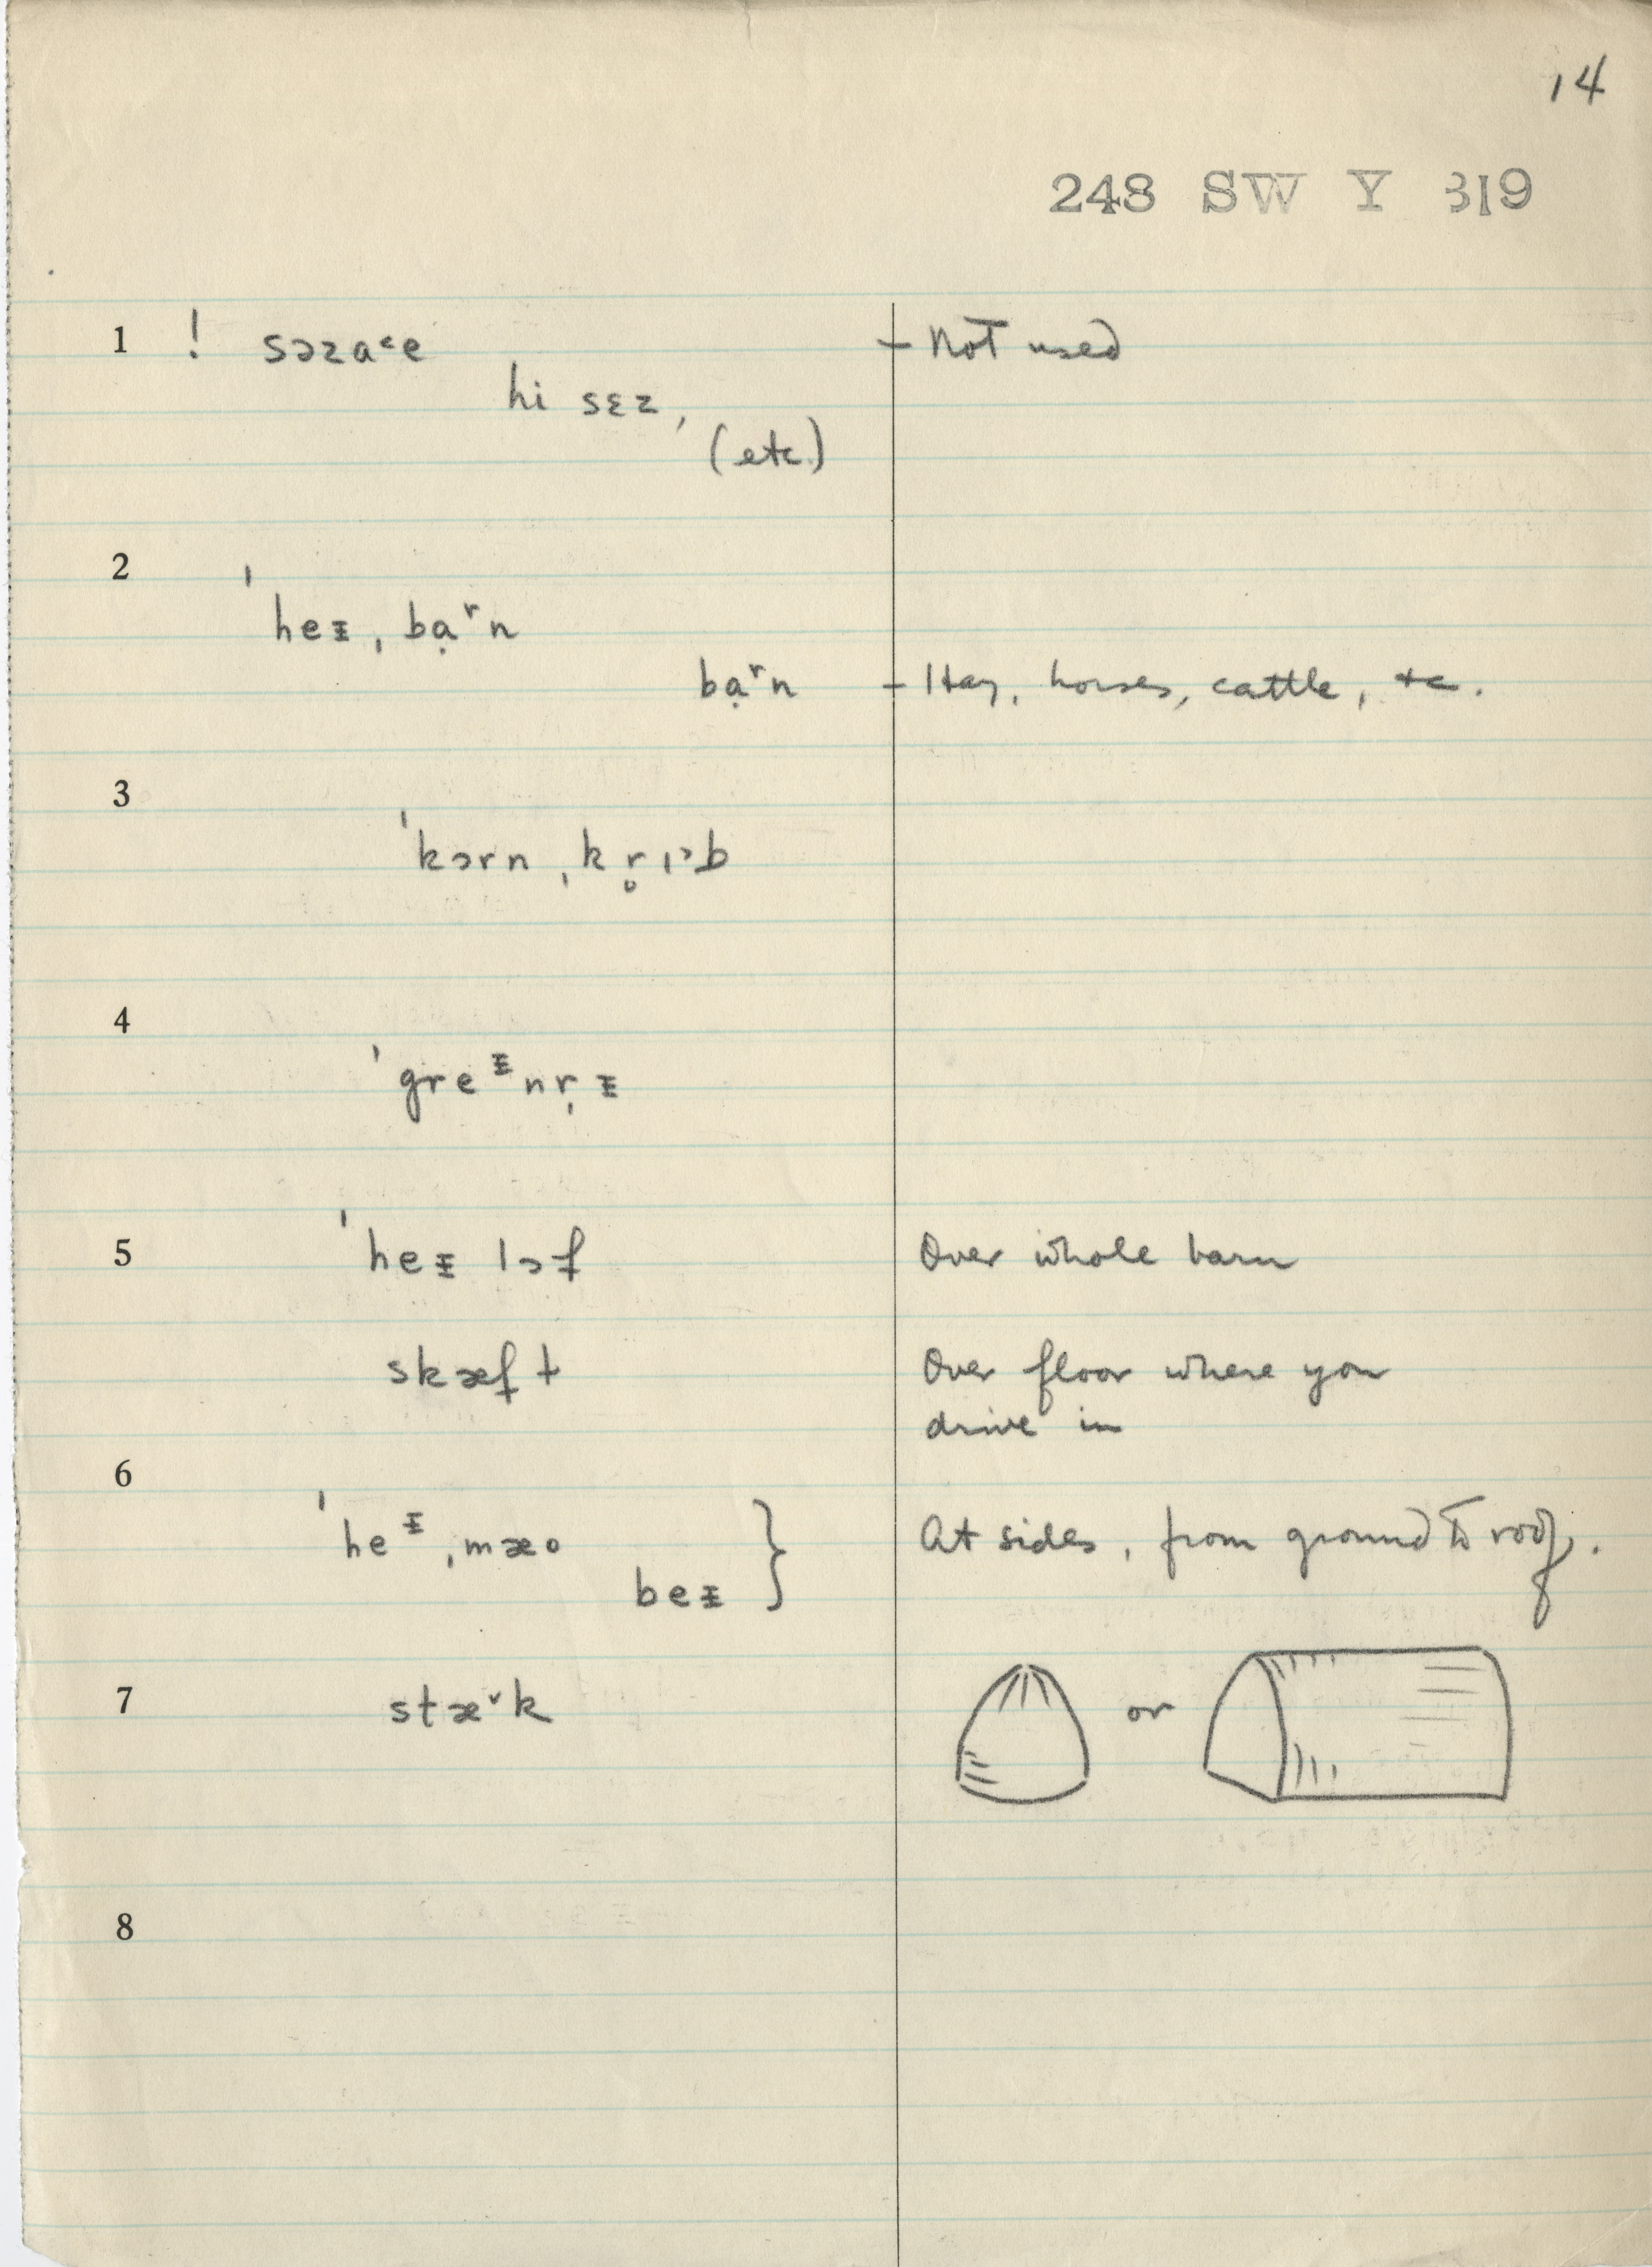 14
248 SW Y 319
1 ! sɔzaᵋe - Not used
hi sɛz,
(etc.)
2
ˈheᵻˌbạʳn
bạʳn - Hay, horses, cattle, etc.
3
ˈkɔrnˌkr̥ɪ˃b
4
ˈgreᵻnr̩ᵻ
5 ˈheᵻ lɔf Over whole barn
skæft Over floor where you
drive in
6
ˈheᵻˌmæo } At sides, from ground to roof.
beᵻ
7 stæ˅k or
8